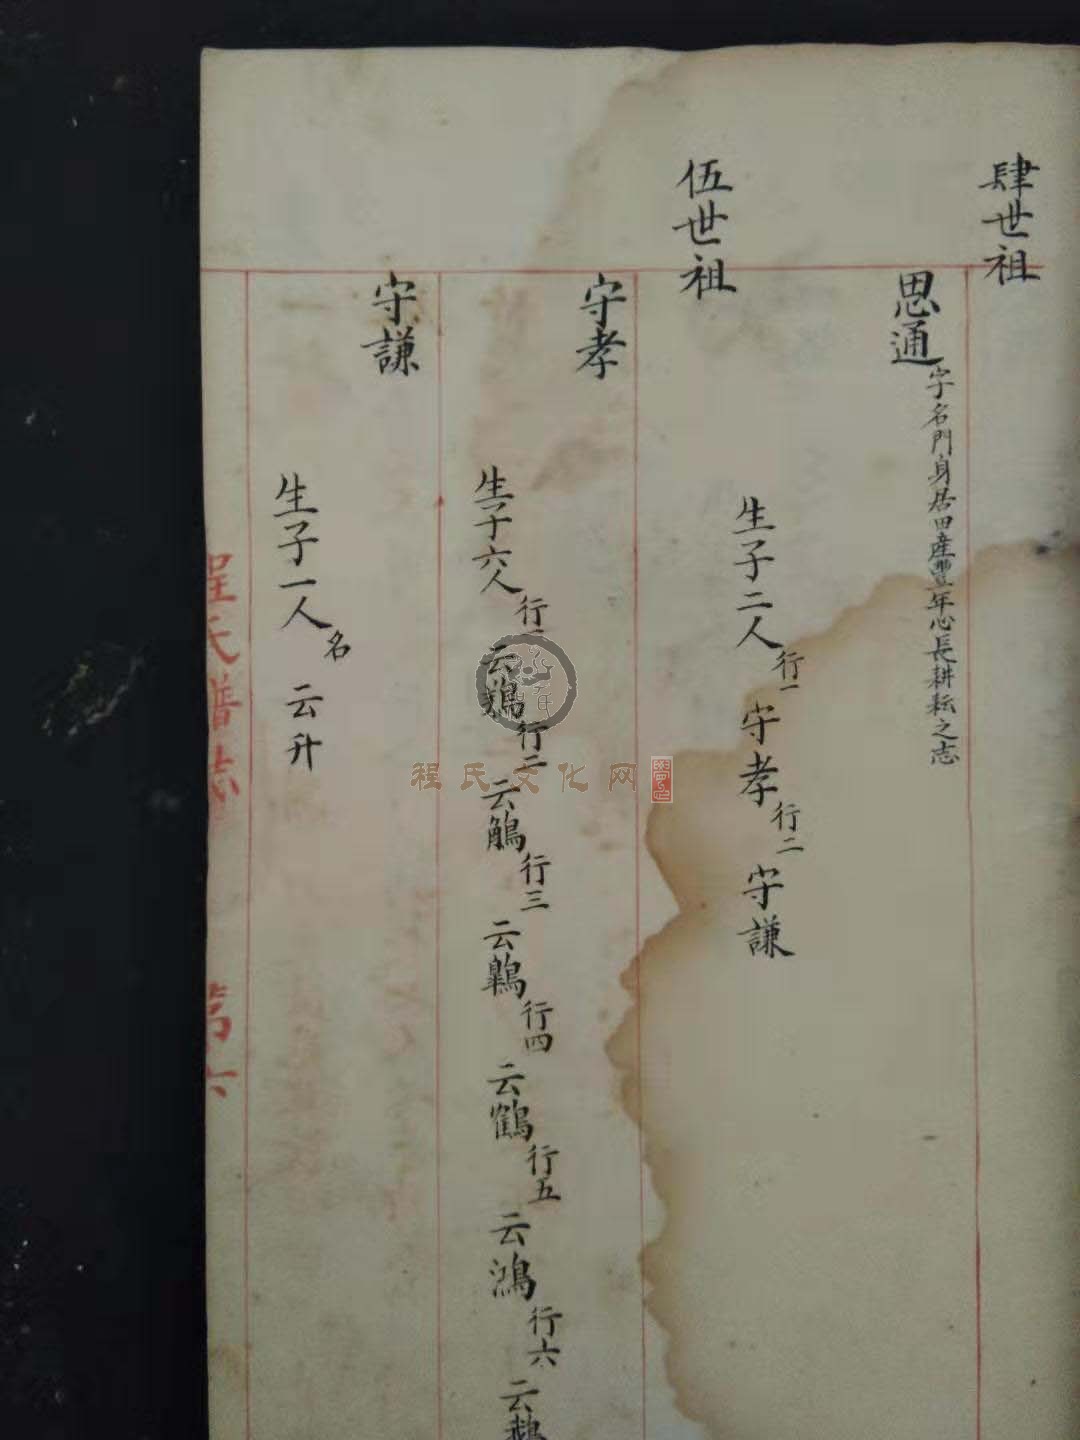 肆世祖
思通 字名門身居田產豐年心長耕耘之志
生子二人 行一 守孝 行二 守謙
伍世祖
守孝
生子六人 行一 云 行二 云 行三 云 行四 云鶴 行五 云鴻 行六 云
守謙
生子一人 名 云升
程氏譜志 第六
程氏文化网